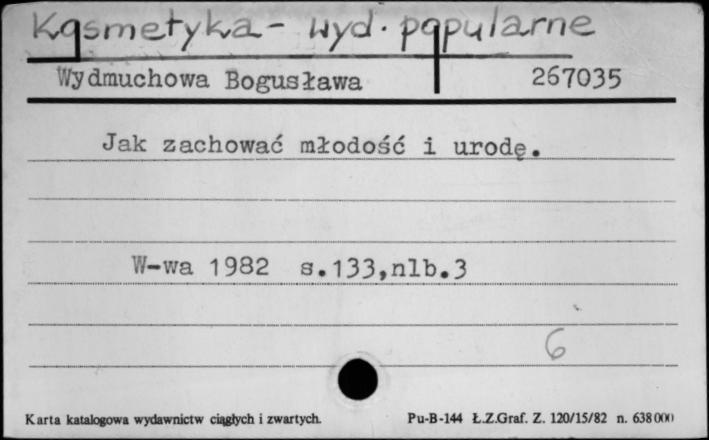 Kosmetyka - wyd. popularne
Wydmuchowa Bogusława 267035
Jak zachować młodość i urodę.
W-wa 1982 s.133,nlb.3
6
Karta katalogowa wydawnictw ciągłych i zwartych. Pu-B-144 Ł.Z.Graf. Z. 120/15/82 n. 638 000